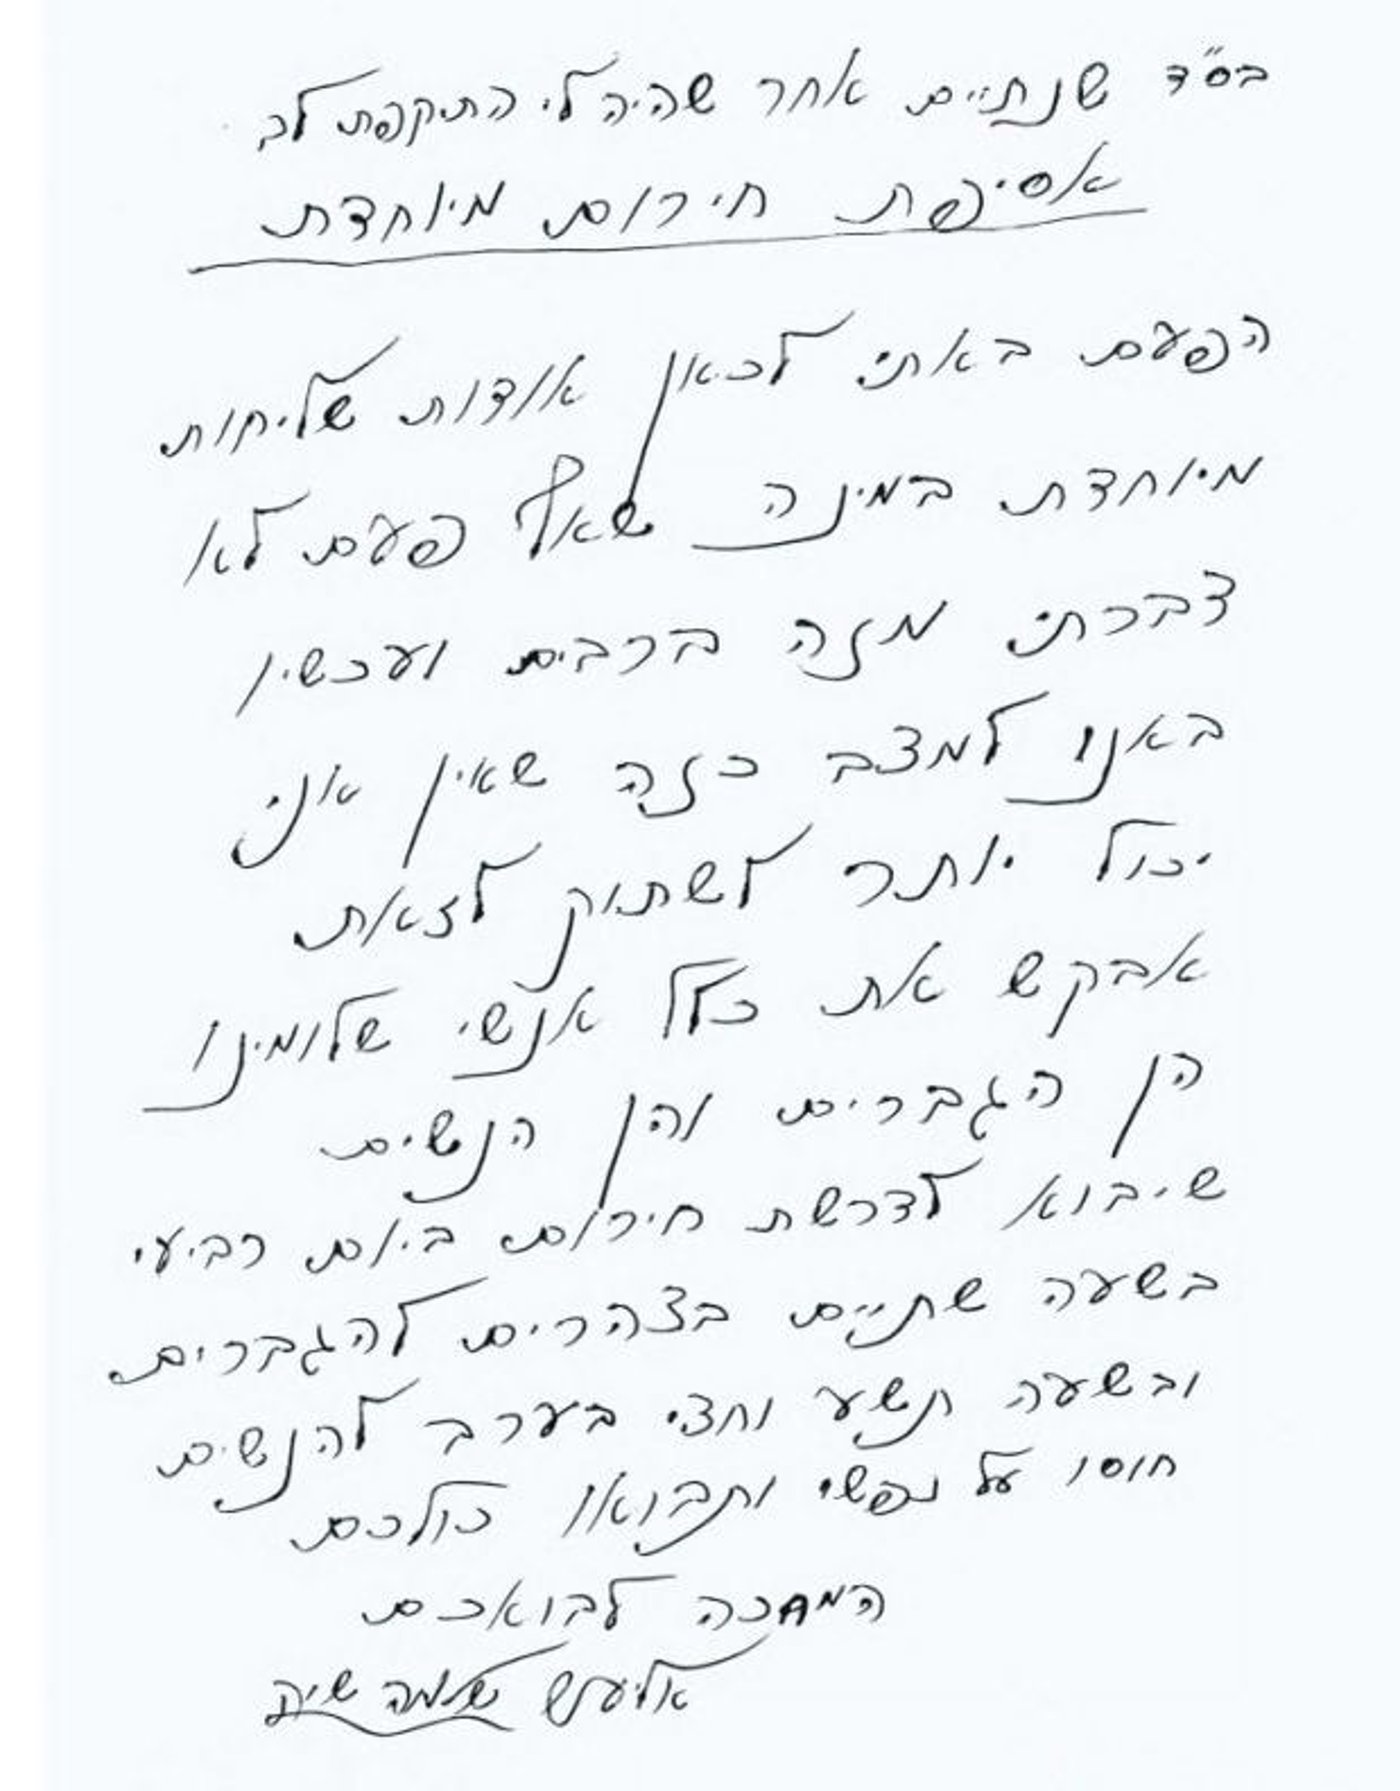 בס"ד שנתיים אחר שהיה לי התקפת לב
אסיפת חירום מיוחדת
הפעם באתי לכאן אודות שליחות
מיוחדת במינה שאף פעם לא
דברתי מזה ברבים ועכשיו
באנו למצב כזה שאין אני
יכול יותר לשתוק לזאת
אבקש את כלל אנשי שלומינו
הן הגברים והן הנשים
שיבוא לדרשת חירום ביום רביעי
בשעה שתיים בצהרים להגברים
ובשעה תשע וחצי בערב להנשים
חוסו על נפשי ותבואו כולכם
המחכה לבואכם
שלמה